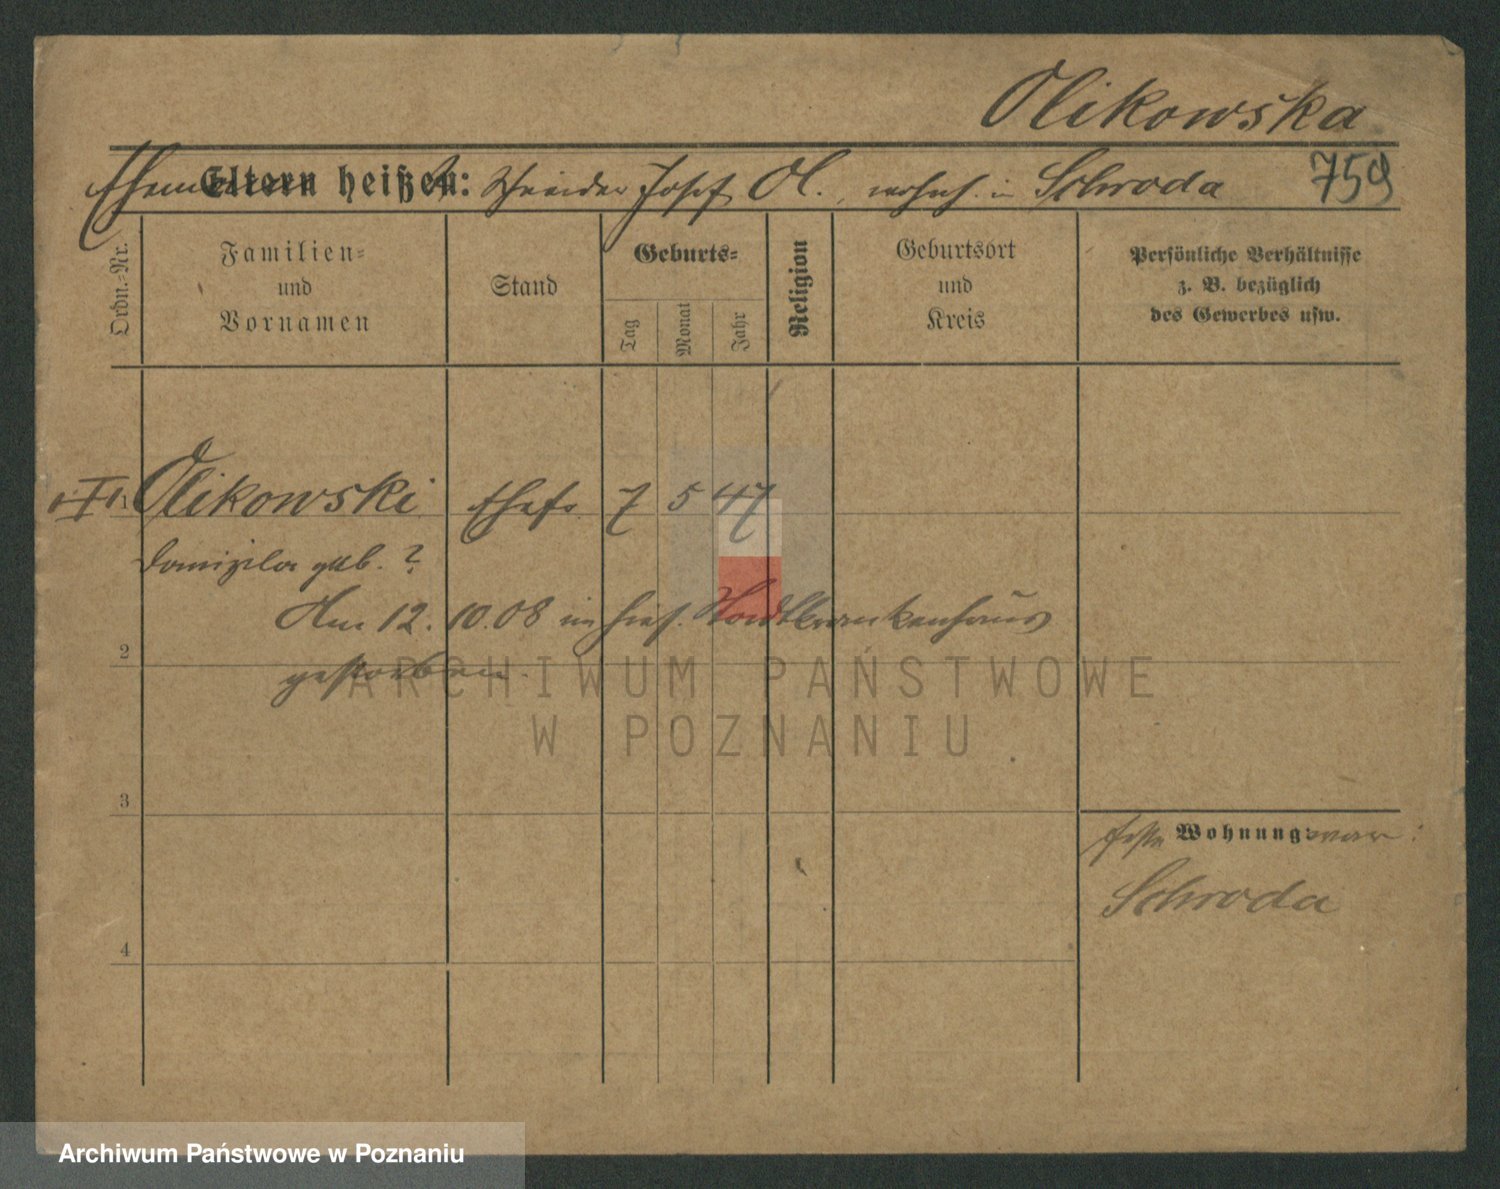 Olikowska
Ehemann Eltern heißen: Schneider Josef Ol., wohnh. in Schroda 759
Ordn.-Nr.
Familien-
und
Vornamen
Stand
Geburts-
Tag
Monat
Jahr
Religion
Geburtsort
und
Kreis
Persönliche Verhältnisse
z. B. bezüglich
des Gewerbes usw.
Olikowski Ehefr. 7 5 47
geb. ?
Am 12. 10. 08 im hies. Stadtkrankenhaus
2
gestorben.
ARCHIWUM PAŃSTWOWE
W POZNANIU
3
feste Wohnung war:
Schroda
4
Archiwum Państwowe w Poznaniu